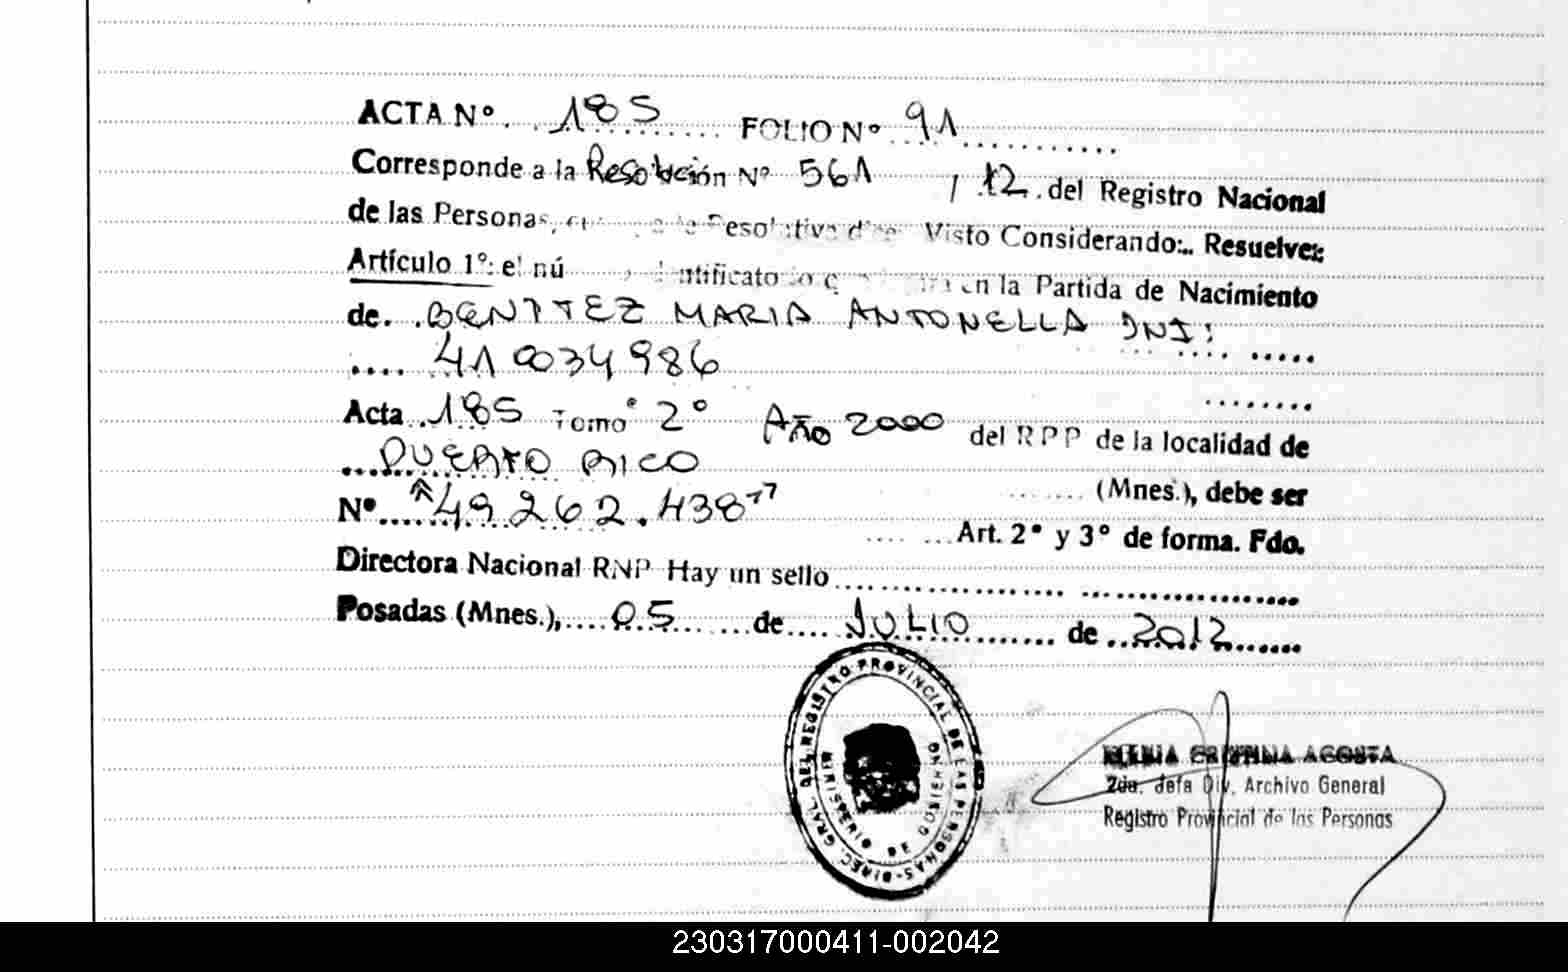 ACTA Nº. 185 FOLIO Nº 91
Corresponde a la Resolución Nº 561 / 12 del Registro Nacional
de las Personas, Resolutiva dice: Visto Considerando:.. Resuelve:
Artículo 1º: el nú identificatorio en la Partida de Nacimiento
de. BENITEZ MARIA ANTONELLA DNI:
41 0034986
Acta 185 Tomo 2º Año 2000 del RPP de la localidad de
PUERTO RICO
(Mnes.), debe ser
Nº "49.262.438"
Art. 2º y 3º de forma. Fdo.
Directora Nacional RNP Hay un sello
Posadas (Mnes.), 05 de JULIO de 2012
DIREC. GRAL. DEL REGISTRO PROVINCIAL DE LAS PERSONAS
MINISTERIO DE GOBIERNO
CRISTINA ACOSTA
2da. Jefa Div. Archivo General
Registro Provincial de las Personas
230317000411-002042